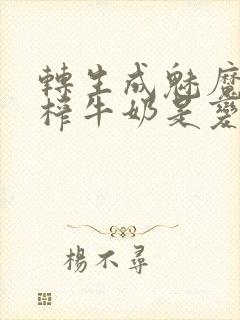 轉生成魅魔
榨牛奶是變
楊不尋